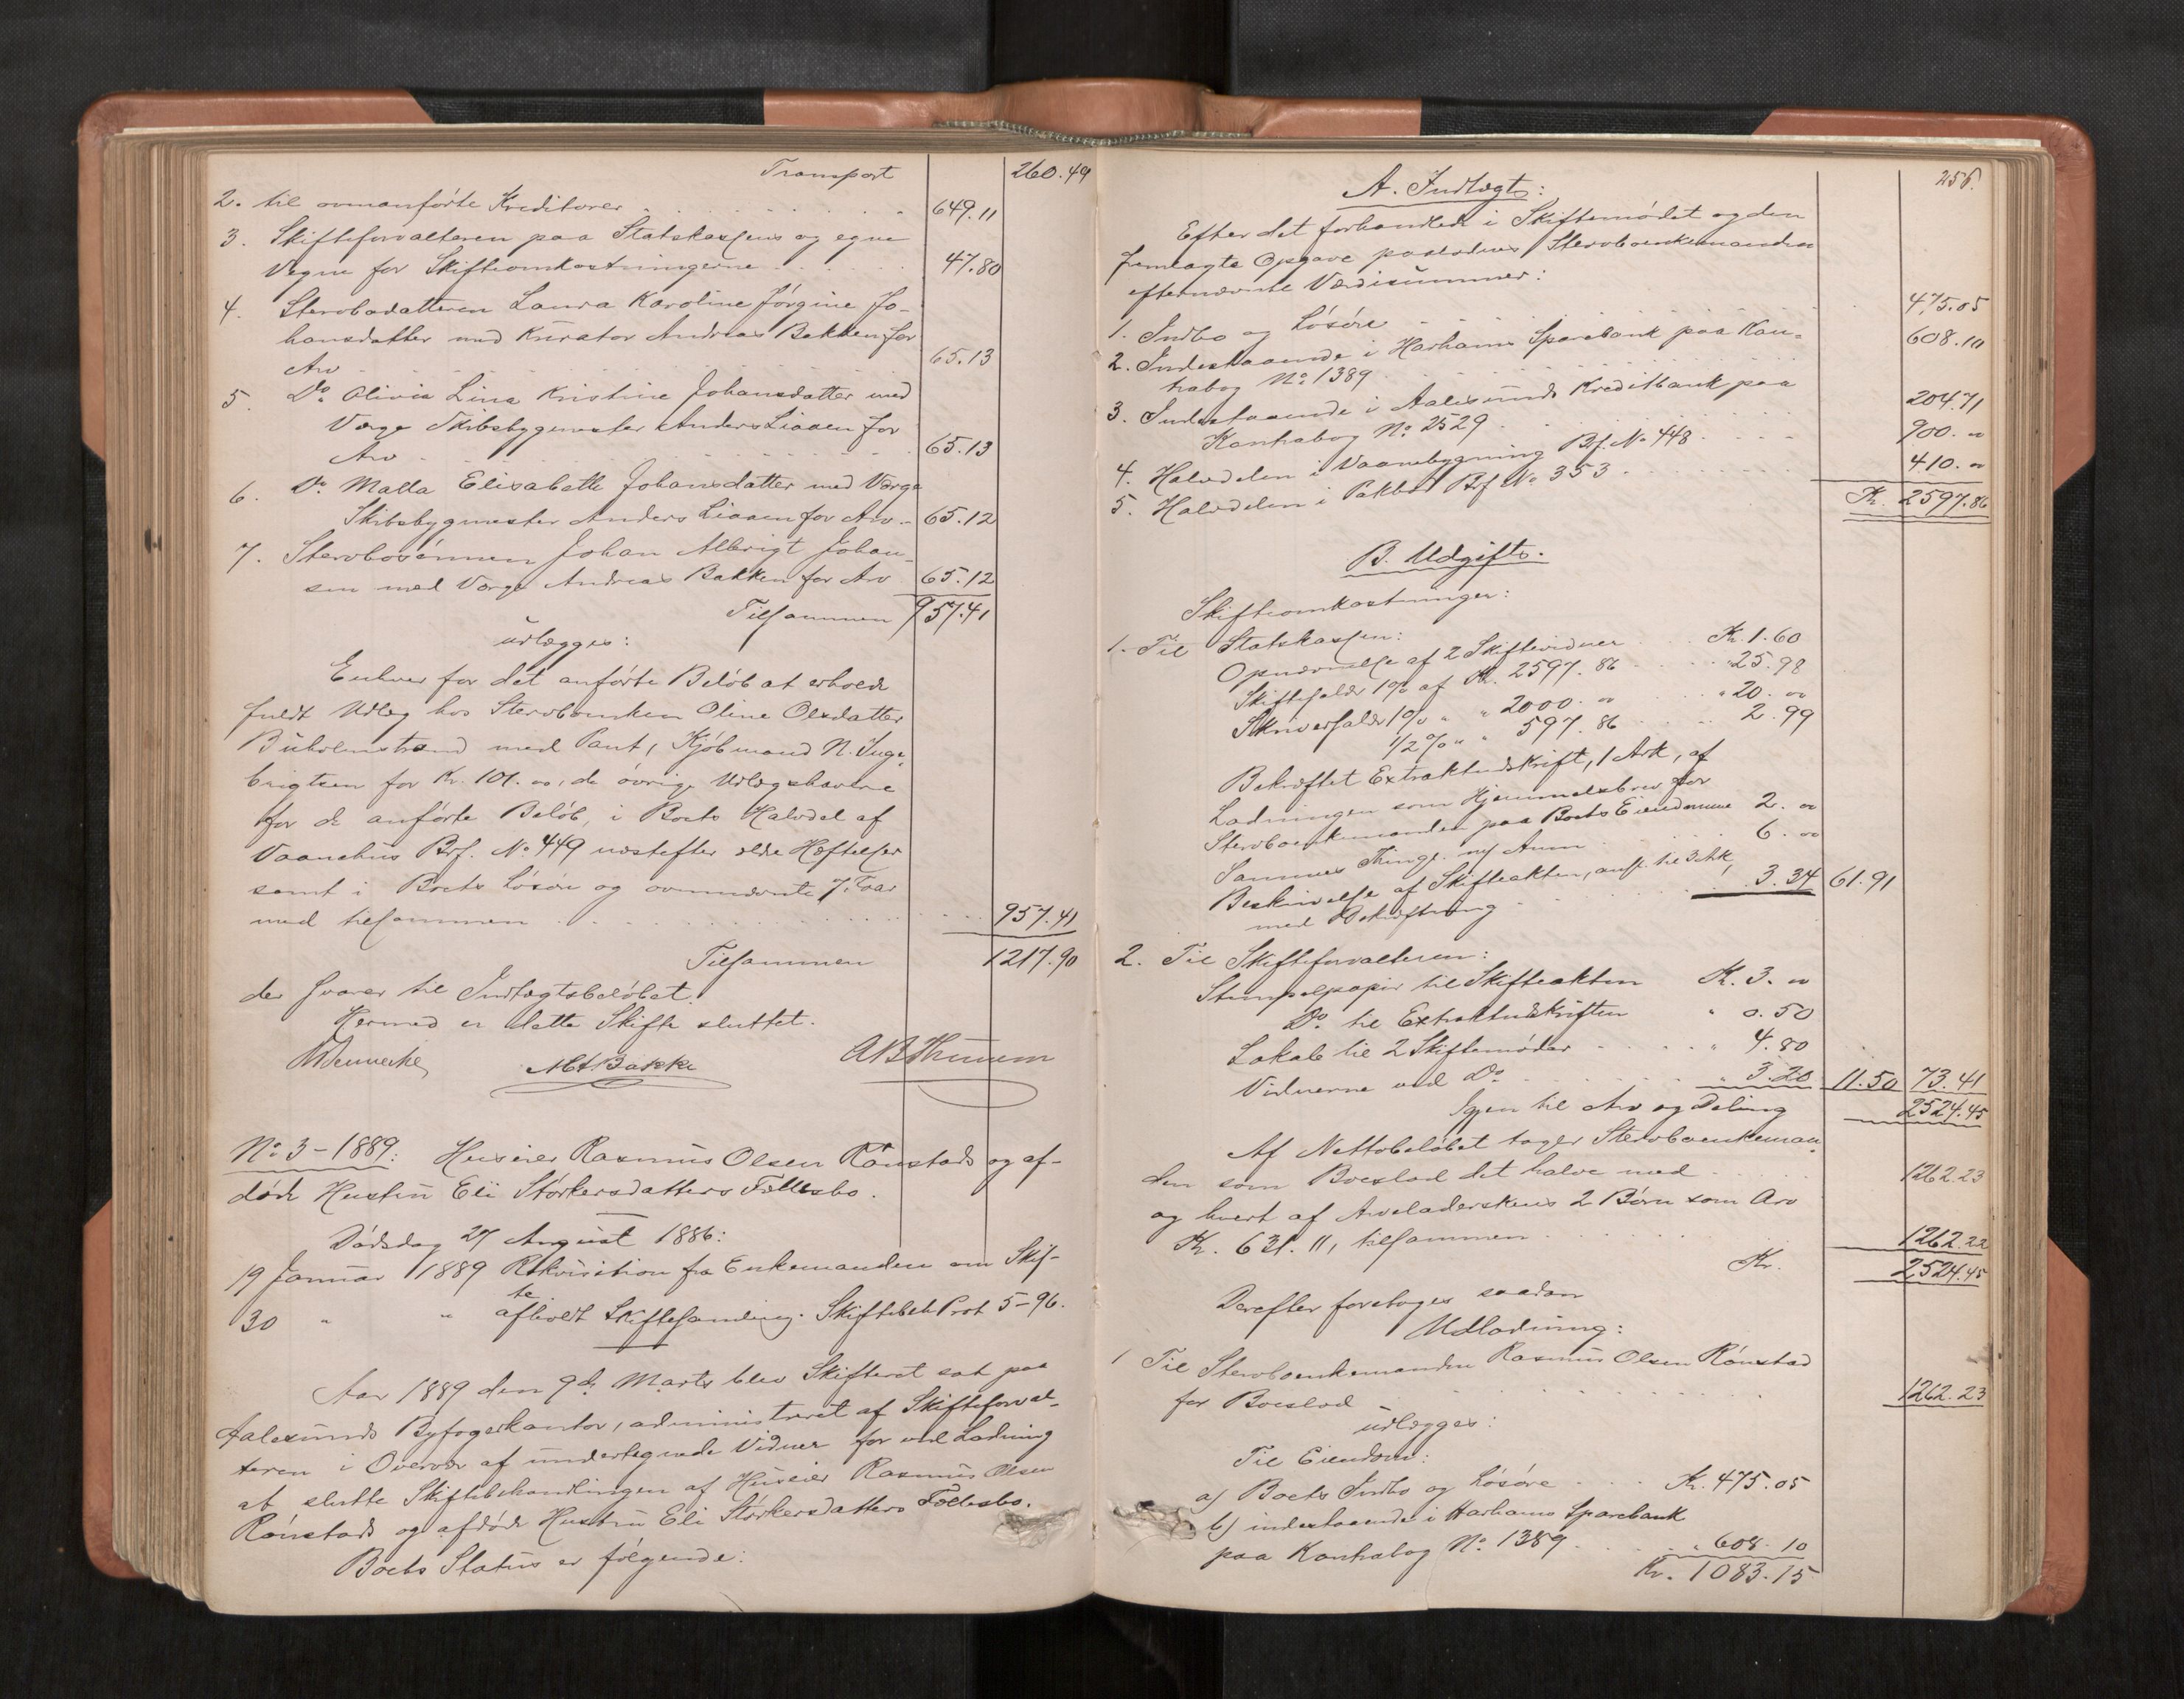 Transport 260.49
2. til ovnanførte Kreditorer . . . . . . . 649.11
3. Skifteforvalteren paa Statskassens og egne
Vegne for Skifteomkostningerne . . . . . 47.80
4. Stervbodatteren Laura Karoline Jørgine Jo-
hansdatter med Kurator Andreas Bakken for
Arv . . . . . . . 65.13
5. Do. Olivia Lina Kristine Johansdatter med
Værge Skibsbygmester Anders Liaaen for
Arv . . . . . . . 65.13
6. Do. Malla Elisabeth Johansdatter med Værge
Skibsbygmester Anders Liaaen for Arv . 65.12
7. Stervbosønnen Johan Albrigt Johan-
sen med Værge Andreas Bakken for Arv 65.12
Tilsammen 957.41
udlægges:
Enhver for det anførte Beløb at erholde
fuldt Udlæg hos Stervboenken Oline Olsdatter
Buholmstrand med Pant, Kjøbmand N. Inge-
brigtsen for Kr. 101.00, de øvrige Udlægshavere
for de anførte Beløb, i Boets Halvdel af
Vaanehus Brf. No 449 næstefter ældre Hæftelser
samt i Boets Løsøre og ovennævnte 7 Faar
med tilsammen . . . . . . . 957.41
Tilsammen 1217.90
der svarer til Indtægtsbeløbet.
Hermed er dette Skifte sluttet.
ABThunem
No 3-1889: Huseier Rasmus Olsen Rønstads og af-
døde Hustru Eli Størkersdatters Fællesbo.
Dødsdag 27 August 1886:
19 Januar 1889 Rekvisition fra Enkemanden om Skif-
te
30 " " afholdt Skiftesamling. Skiftebeh Prot 5-96.
Aar 1889 den 9de Marts blev Skifteret sat paa
Aalesunds Byfogedkontor, administreret af Skifteforval-
teren i Overvær af undertegnede Vidner for ved Ladning
at slutte Skiftebehandlingen af Huseier Rasmus Olsen
Rønstads og afdøde Hustru Eli Størkersdatters Fællesbo.
Boets Status er følgende:
256.
A. Indtægt:
Efter det forhandlede i Skiftemødet og den
fremlagte Opgave paalodnes Stervboenkemanden
efternævnte Værdisummer:
1. Indbo og Løsøre . . . . . . . 475.05
2. Indestaaende i Harhams Sparebank paa Kon-
trabog No 1389 . . . . . . . 608.10
3. Indestaaende i Aalesunds Kreditbank paa
Kontrabog No 2529 . . . . . . . 204.71
4. Halvdelen i Vaanebygning Brf. No 448 . . . . 900.00
5. Halvdelen i Pakbod Brf No 353 . . . . . 410.00
Kr. 2597.86
B. Udgift.
Skifteomkostninger:
1. Til Statskassen:
Opnævnelse af 2 Skiftevidner Kr. 1.60
Skiftefald 1% af Kr. 2597.86 . . . . 25.98
Skriverfald 1% " " 2000.00 . . . . " 20.00
1/2% " " 597.86 . . . . 2.99
Bekræftet Extraktudskrift, 1 Ark, af
Ladningen som Hjemmelsbrev for
Stervboenkemanden paa Boets Eiendomme 2.00
Sammes Thingl. m/ Anm . . . . . 6.00
Beskrivelse af Skifteakten, ansl. til 3 Ark,
med Bekræftning . . . . . 3.34 61.91
2. Til Skifteforvalteren:
Stempelpapir til Skifteakten Kr. 3.00
Do. til Extraktudskriften " 0.50
Lokale til 2 Skiftemøder . . . . " 4.80
Vidnerne ved Do. . . . . " 3.20 11.50 73.41
Igjen til Arv og Deling 2524.45
Af Nettobeløbet tager Stervboenkeman-
den som Boeslod det halve med . . . . 1262.23
og hvert af Arveladerskens 2 Børn som Arv
Kr. 631.11, tilsammen . . . . . . 1262.22
Kr. 2524.45
Derefter foretoges saadan
Udlodning:
1 Til Stervboenkemanden Rasmus Olsen Rønstad
for Boeslod . . . . . . . 1262.23
udlægges:
Til Eiendom:
a) Boets Indbo og Løsøre . . . . Kr. 475.05
b) indestaaende i Harhams Sparebank
paa Kontrabog No. 1389 . . . . " 608.10
Kr. 1083.15